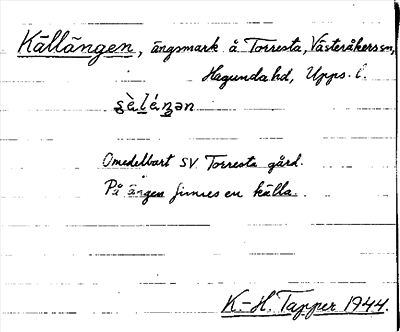 Källängen, ängsmark å Torresta, Västeråkers sn,
Hagunda hd, Upps. l.
Omedelbart SV. Torresta gård.
På ängen finnes en källa.
K.-H. Tapper 1944.